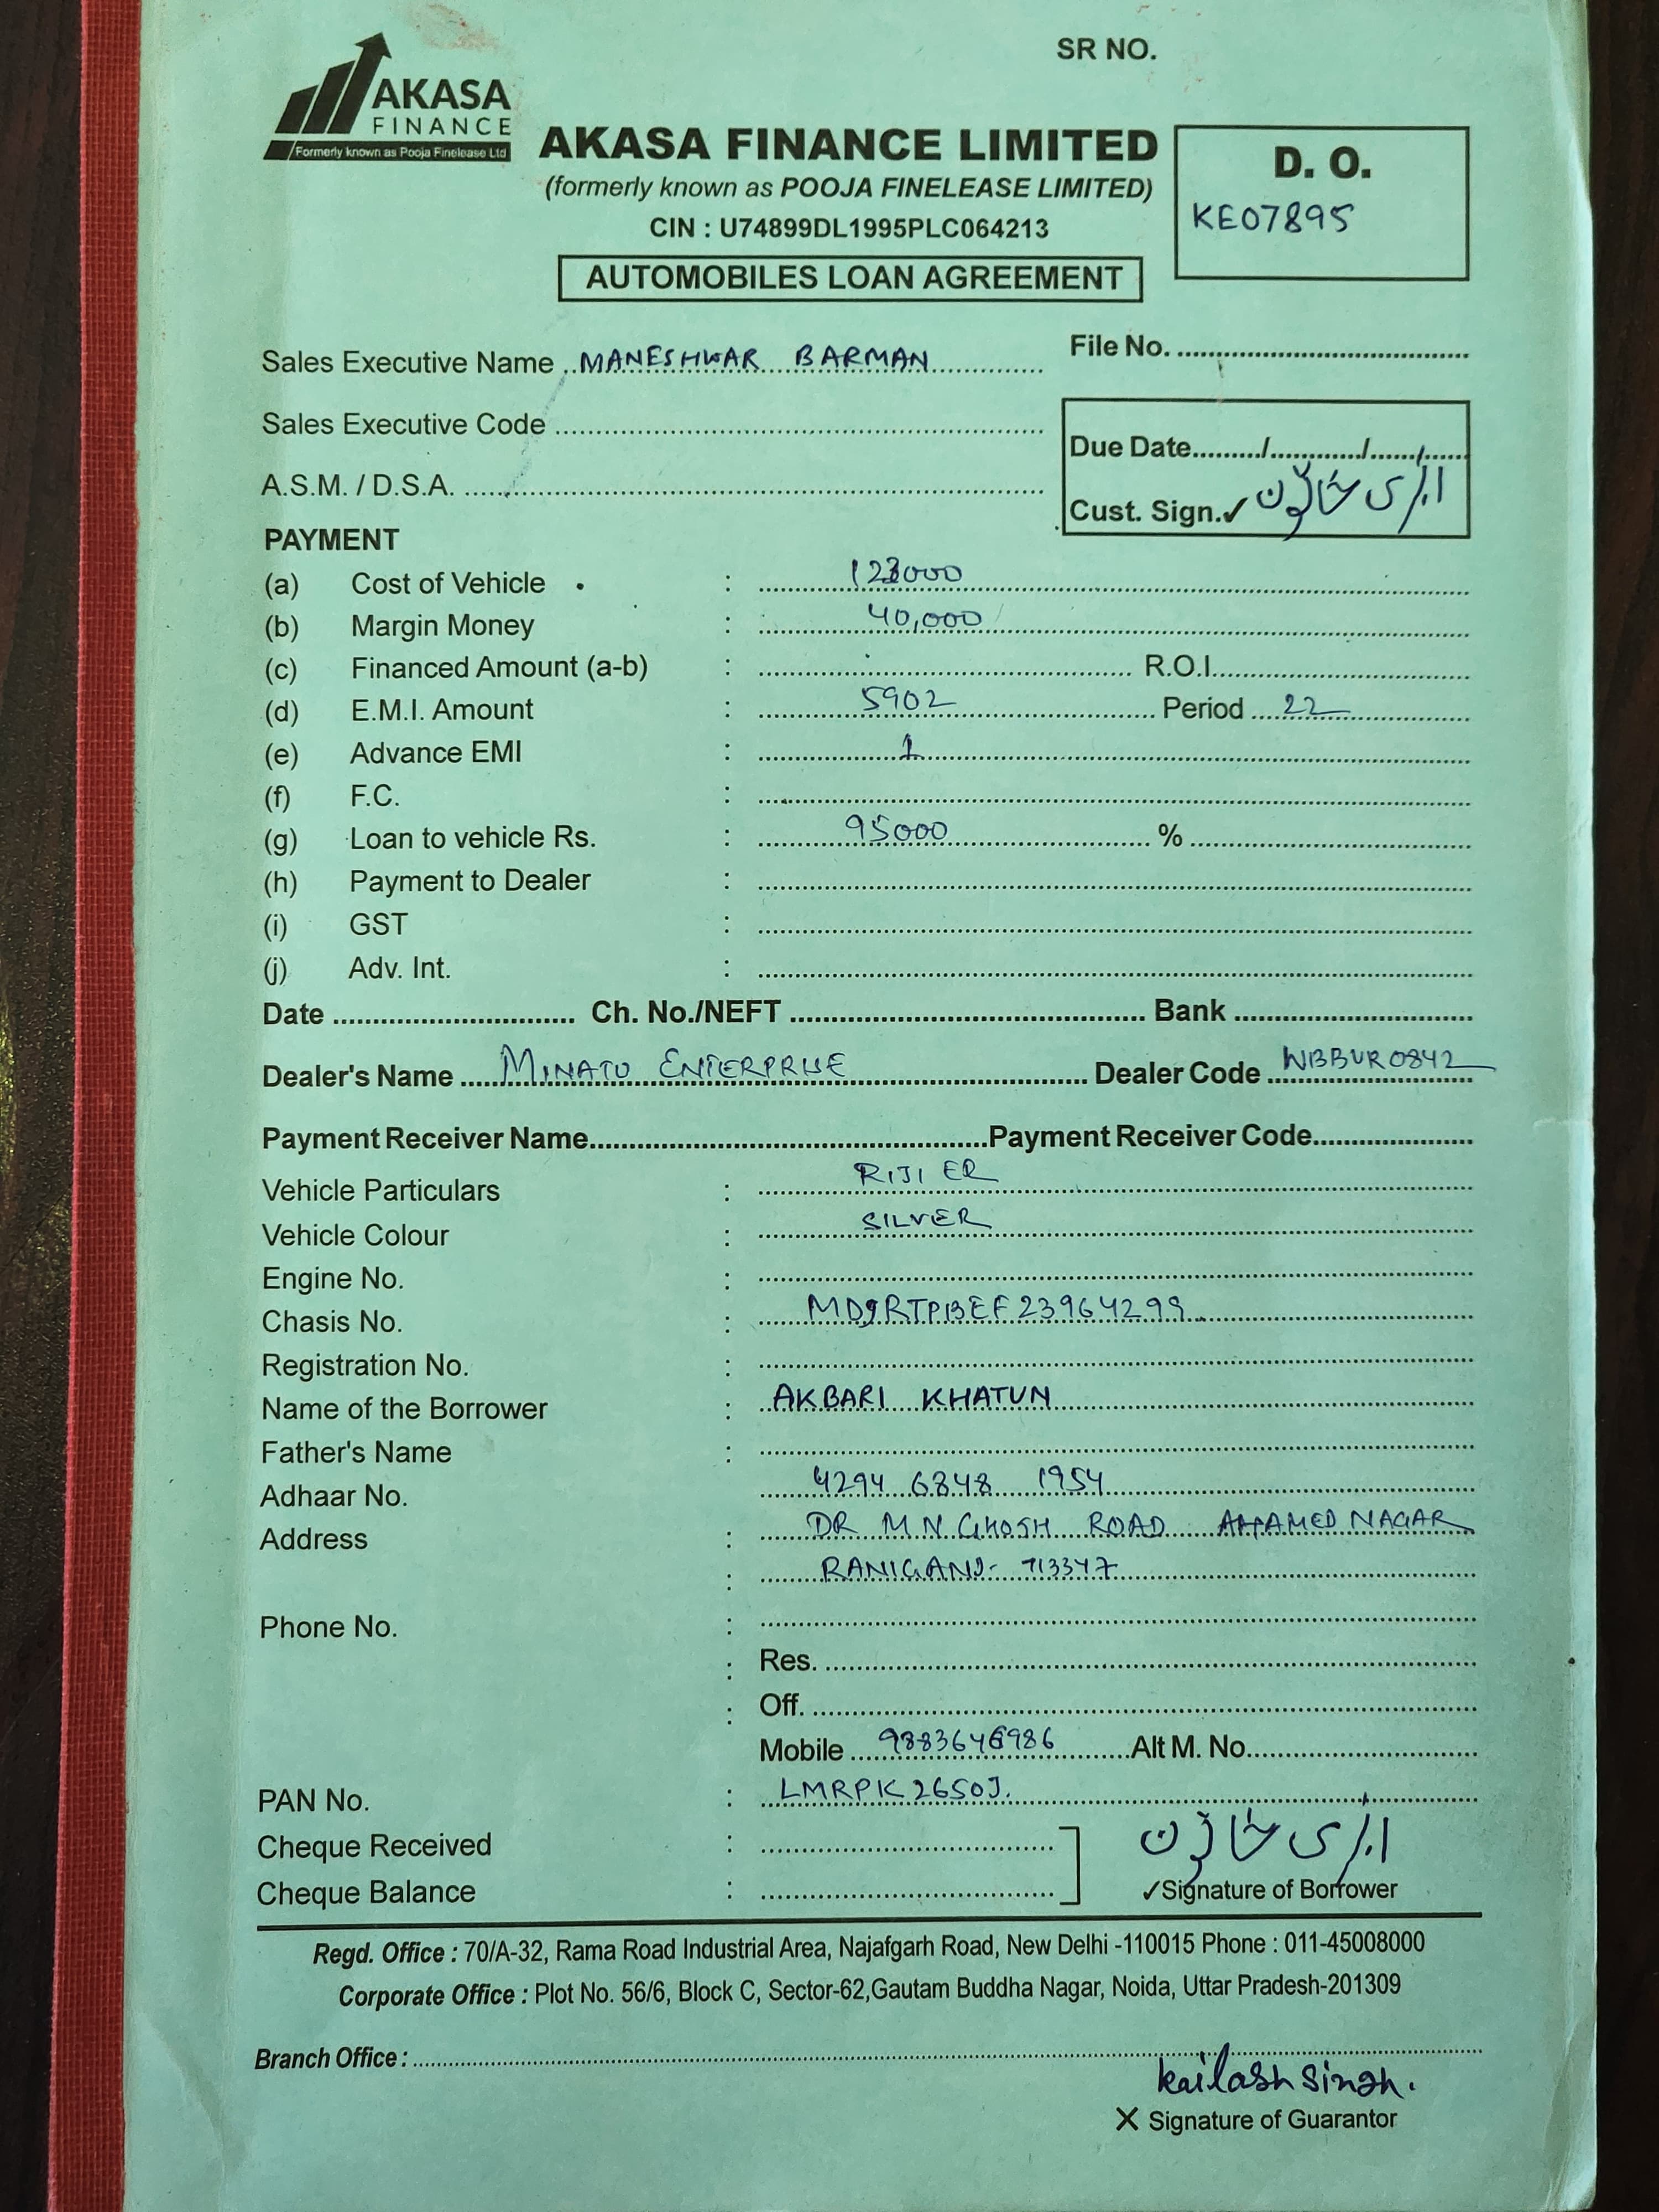 SR NO.
AKASA
FINANCE
Formerly known as Pooja Finelease Ltd
AKASA FINANCE LIMITED
(formerly known as POOJA FINELEASE LIMITED)
CIN : U74899DL1995PLC064213
AUTOMOBILES LOAN AGREEMENT
D. O.
KE07895
Sales Executive Name MANESHWAR BARMAN
File No.
Sales Executive Code
A.S.M. / D.S.A.
Due Date / /
Cust. Sign.✓
PAYMENT
(a) Cost of Vehicle : 123000
(b) Margin Money : 40,000
(c) Financed Amount (a-b) : R.O.I.
(d) E.M.I. Amount : 5902 Period 22
(e) Advance EMI : 1
(f) F.C. :
(g) Loan to vehicle Rs. : 95000 %
(h) Payment to Dealer :
(i) GST :
(j) Adv. Int. :
Date Ch. No./NEFT Bank
Dealer's Name MINATU ENTERPRISE Dealer Code WBBUR0842
Payment Receiver Name Payment Receiver Code
Vehicle Particulars : RIJI ER
Vehicle Colour : SILVER
Engine No. :
Chasis No. : MD9RTPBEF23964299
Registration No. :
Name of the Borrower : AKBARI KHATUN
Father's Name :
Adhaar No. 4294 6848 1954
Address : DR M.N. GHOSH ROAD NAGAR
: RANIGANJ- 713347
Phone No. :
: Res.
: Off.
Mobile 9883646986 Alt M. No.
PAN No. : LMRPK2650J.
Cheque Received :
Cheque Balance :
✓Signature of Borrower
Regd. Office : 70/A-32, Rama Road Industrial Area, Najafgarh Road, New Delhi -110015 Phone : 011-45008000
Corporate Office : Plot No. 56/6, Block C, Sector-62,Gautam Buddha Nagar, Noida, Uttar Pradesh-201309
Branch Office :
kailash singh.
X Signature of Guarantor